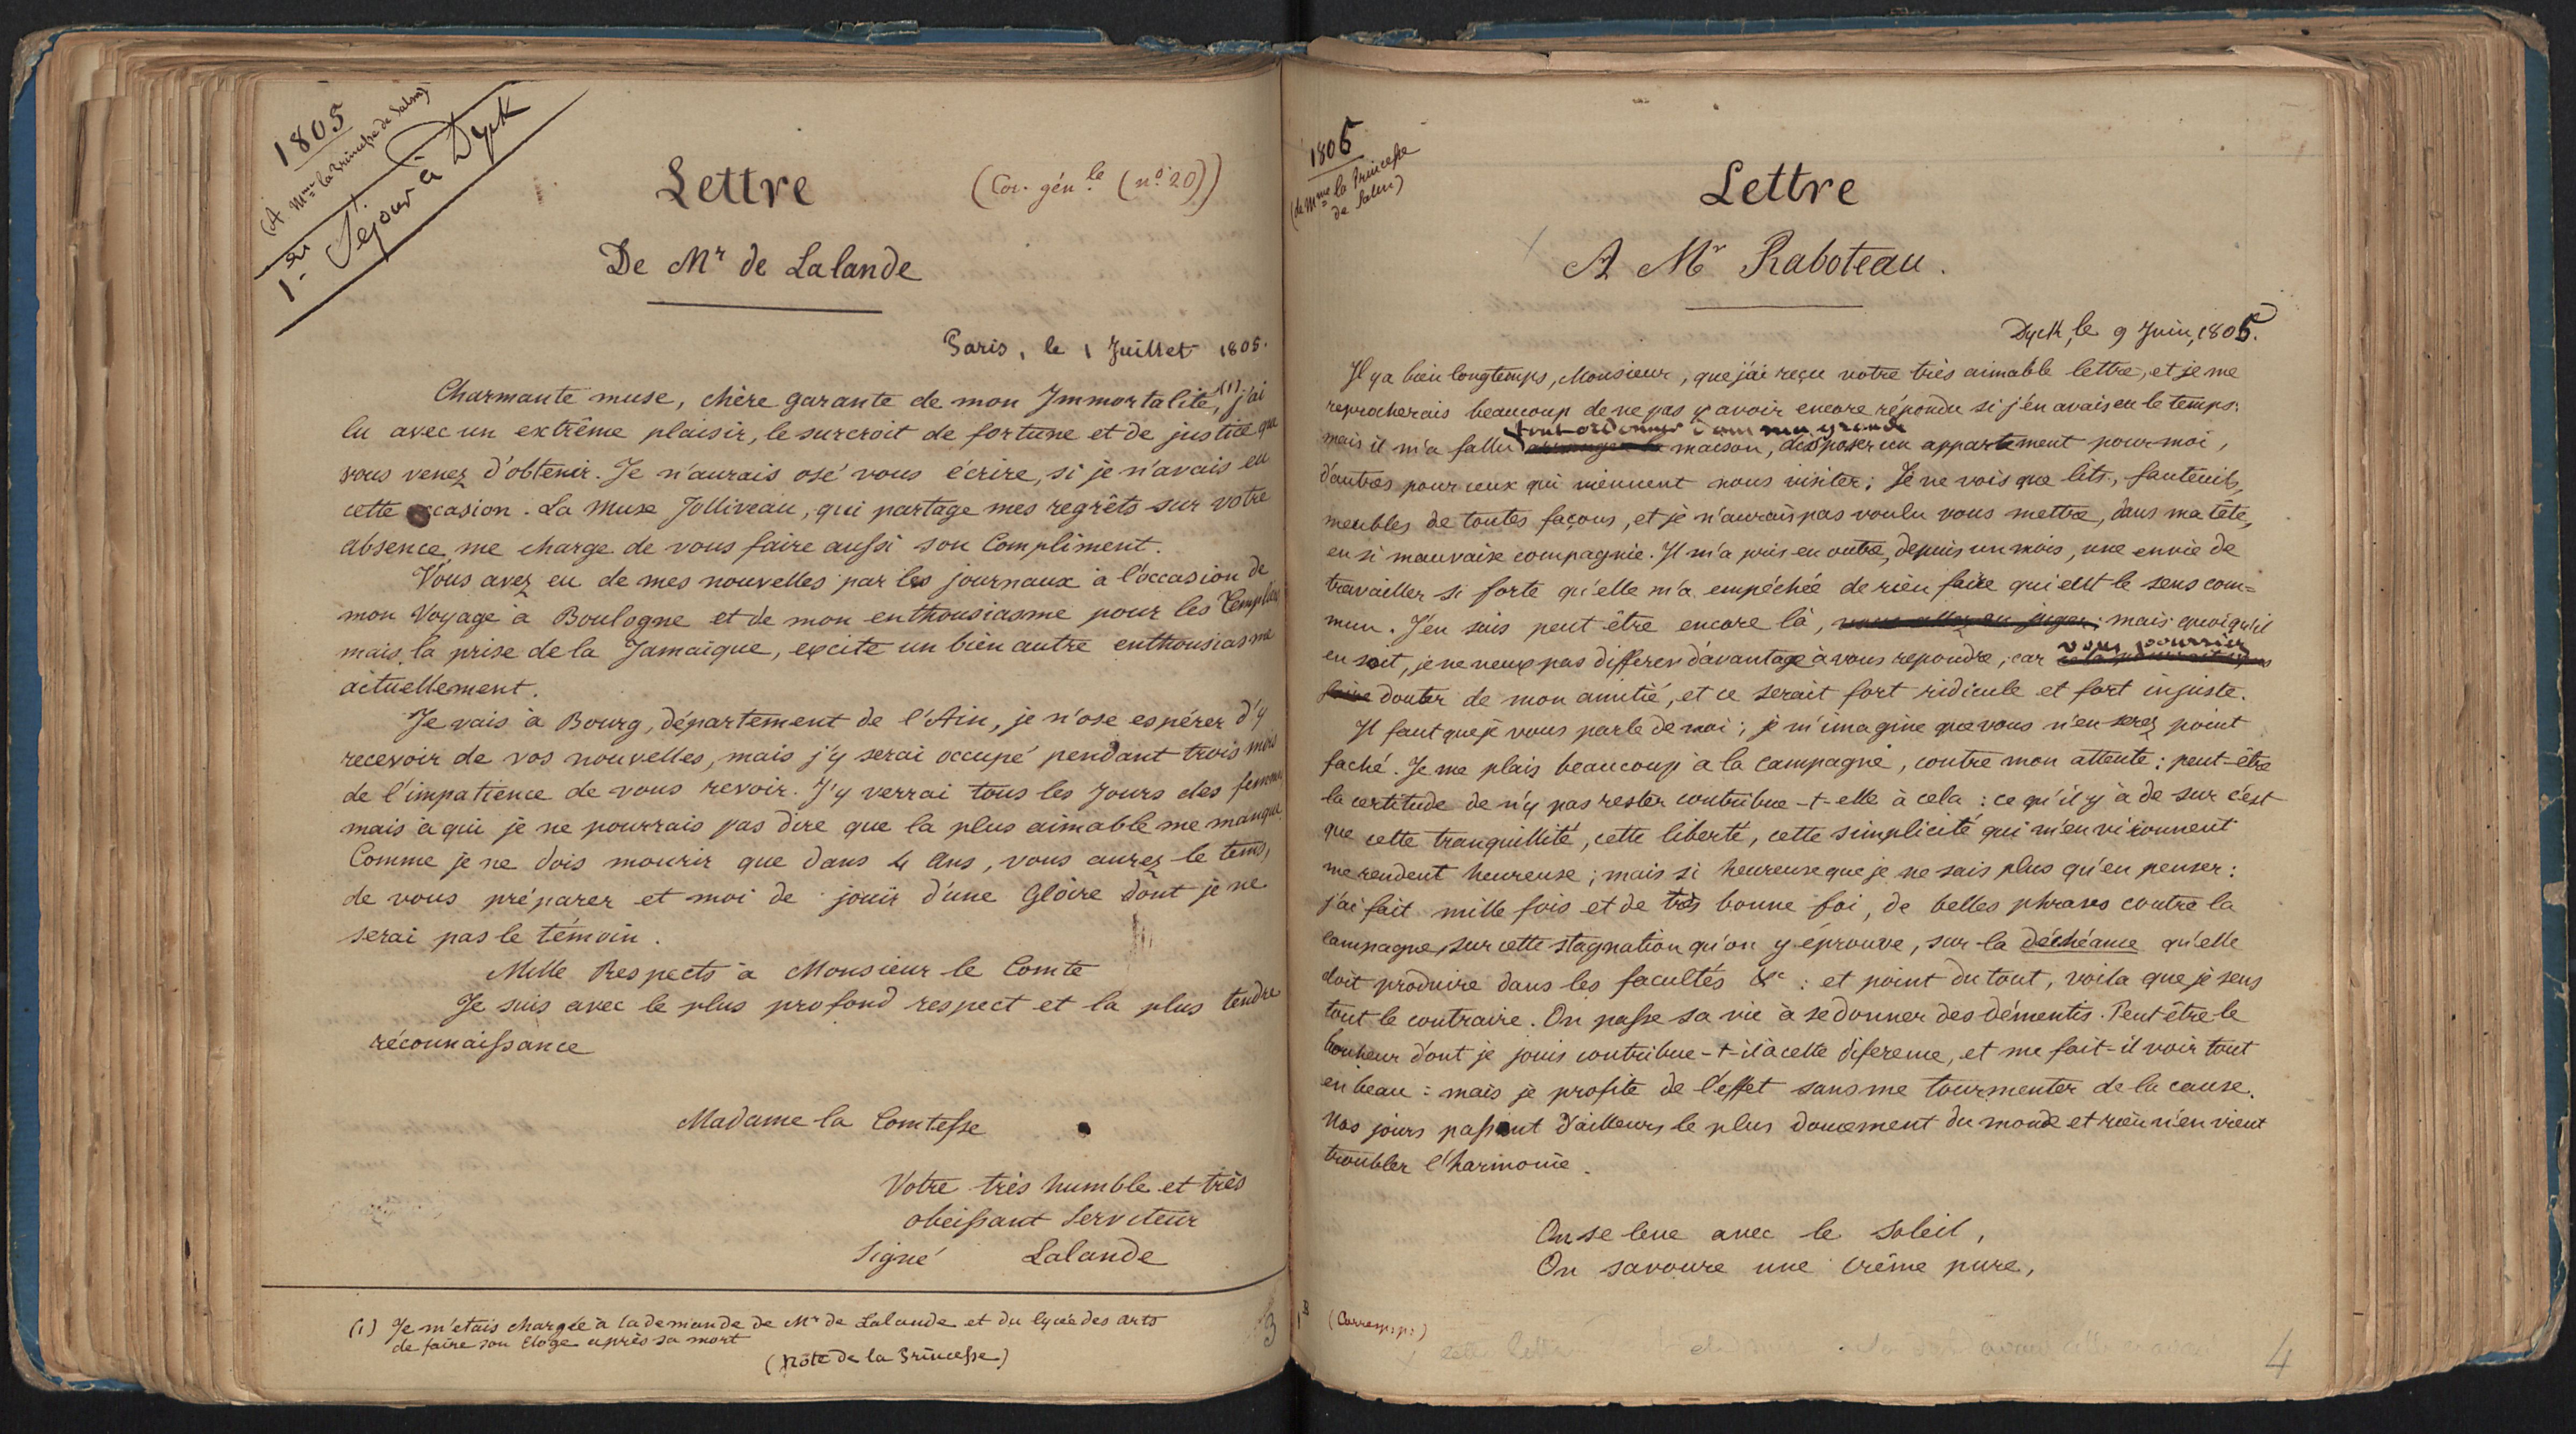 1805
(A Mme la Princesse de Salm)
1er Séjour à Dyck
Lettre
(Cor. génle (no. 20))
De Mr de Lalande
Paris, le 1 Juillet 1805.
Charmante muse, chère garante de mon Immortalité,(1) j'ai
lu avec un extrême plaisir, le surcroit de fortune et de justice que
vous venez d'obtenir. Je n'aurais osé vous écrire, si je n'avais eu
cette occasion. La Muse Jolliveau, qui partage mes regrêts sur votre
absence, me charge de vous faire aussi son Compliment.
Vous avez eu de mes nouvelles par les journaux à l'occasion de
mon Voyage à Boulogne et de mon enthousiasme pour les Templiers
mais, la prise de la Jamaïque, excite un bien autre enthousiasme
actuellement.
Je vais à Bourg, département de l'Ain, je n'ose espérer d'y
recevoir de vos nouvelles, mais j'y serai occupé pendant trois mois
de l'impatience de vous revoir. J'y verrai tous les jours des femmes
mais à qui je ne pourrais pas dire que la plus aimable me manque.
Comme je ne dois mourir que dans 4 Ans, vous aurez le tems,
de vous préparer et moi de jouir d'une Gloire dont je ne
serai pas le témoin.
Mille Respects à Monsieur le Comte
Je suis avec le plus profond respect et la plus tendre
réconnaissance
Madame la Comtesse
Votre très humble et très
obeissant Serviteur
Signé Lalande
(1) Je m'etais chargée à la demande de Mr de Lalande et du lycée des arts
de faire son Eloge après sa mort
(Nôte de la Princesse)
3
1805
(de Mme la Princesse
de Salm)
Lettre
A Mr Raboteau.
Dyck, le 9 Juin, 1805.
Il y a bien longtemps, Monsieur, que j'ai reçu votre très aimable lettre, et je me
reprocherais beaucoup de ne pas y avoir encore répondu si j'en avais eu le temps:
tout ordonner dans ma grande
mais il m'a fallu arranger la maison, disposer un appartement pour moi,
d'autres pour ceux qui viennent nous visiter; Je ne vois que lits, fauteuils,
meubles de toutes façons, et je n'aurais pas voulu vous mettre, dans ma tête,
en si mauvaise compagnie. Il m'a pris en outre, depuis un mois, une envie de
travailler si forte qu'elle m'a empêchée de rien faire qui eut le sens com=
mun. J'en suis peut être encore là, vous allez en juger; mais quoiqu'il
vous pourriez
en soit, je ne veux pas differer d'avantage à vous repondre, car cela pourrait vous
faire douter de mon amitié, et ce serait fort ridicule et fort injuste.
Il faut que je vous parle de moi; je m'imagine que vous n'en serez point
faché. Je me plais beaucoup à la campagne, contre mon attente; peut-être
la certitude de n'y pas rester contribue-t-elle à cela: ce qu'il y à de sur c'est
que cette tranquillité, cette liberté, cette simplicité qui m'environnent
me rendent heureuse; mais si heureuse que je ne sais plus qu'en penser:
j'ai fait mille fois et de très bonne foi, de belles phrases contre la
campagne, sur cette stagnation qu'on y éprouve, sur la déchéance qu'elle
doit produire dans les facultés &c: et point du tout, voila que je sens
tout le contraire. On passe sa vie à se donner des démentis. Peut être le
bonheur dont je jouis contribue-t-il à cette diference, et me fait-il voir tout
en beau: mais je profite de l'effet sans me tourmenter de la cause.
Nos jours passent d'ailleurs le plus doucement du monde et rien n'en vient
troubler l'harmonie.
On se leve avec le soleil,
On savoure une crême pure,
(Corresp: p:)
4